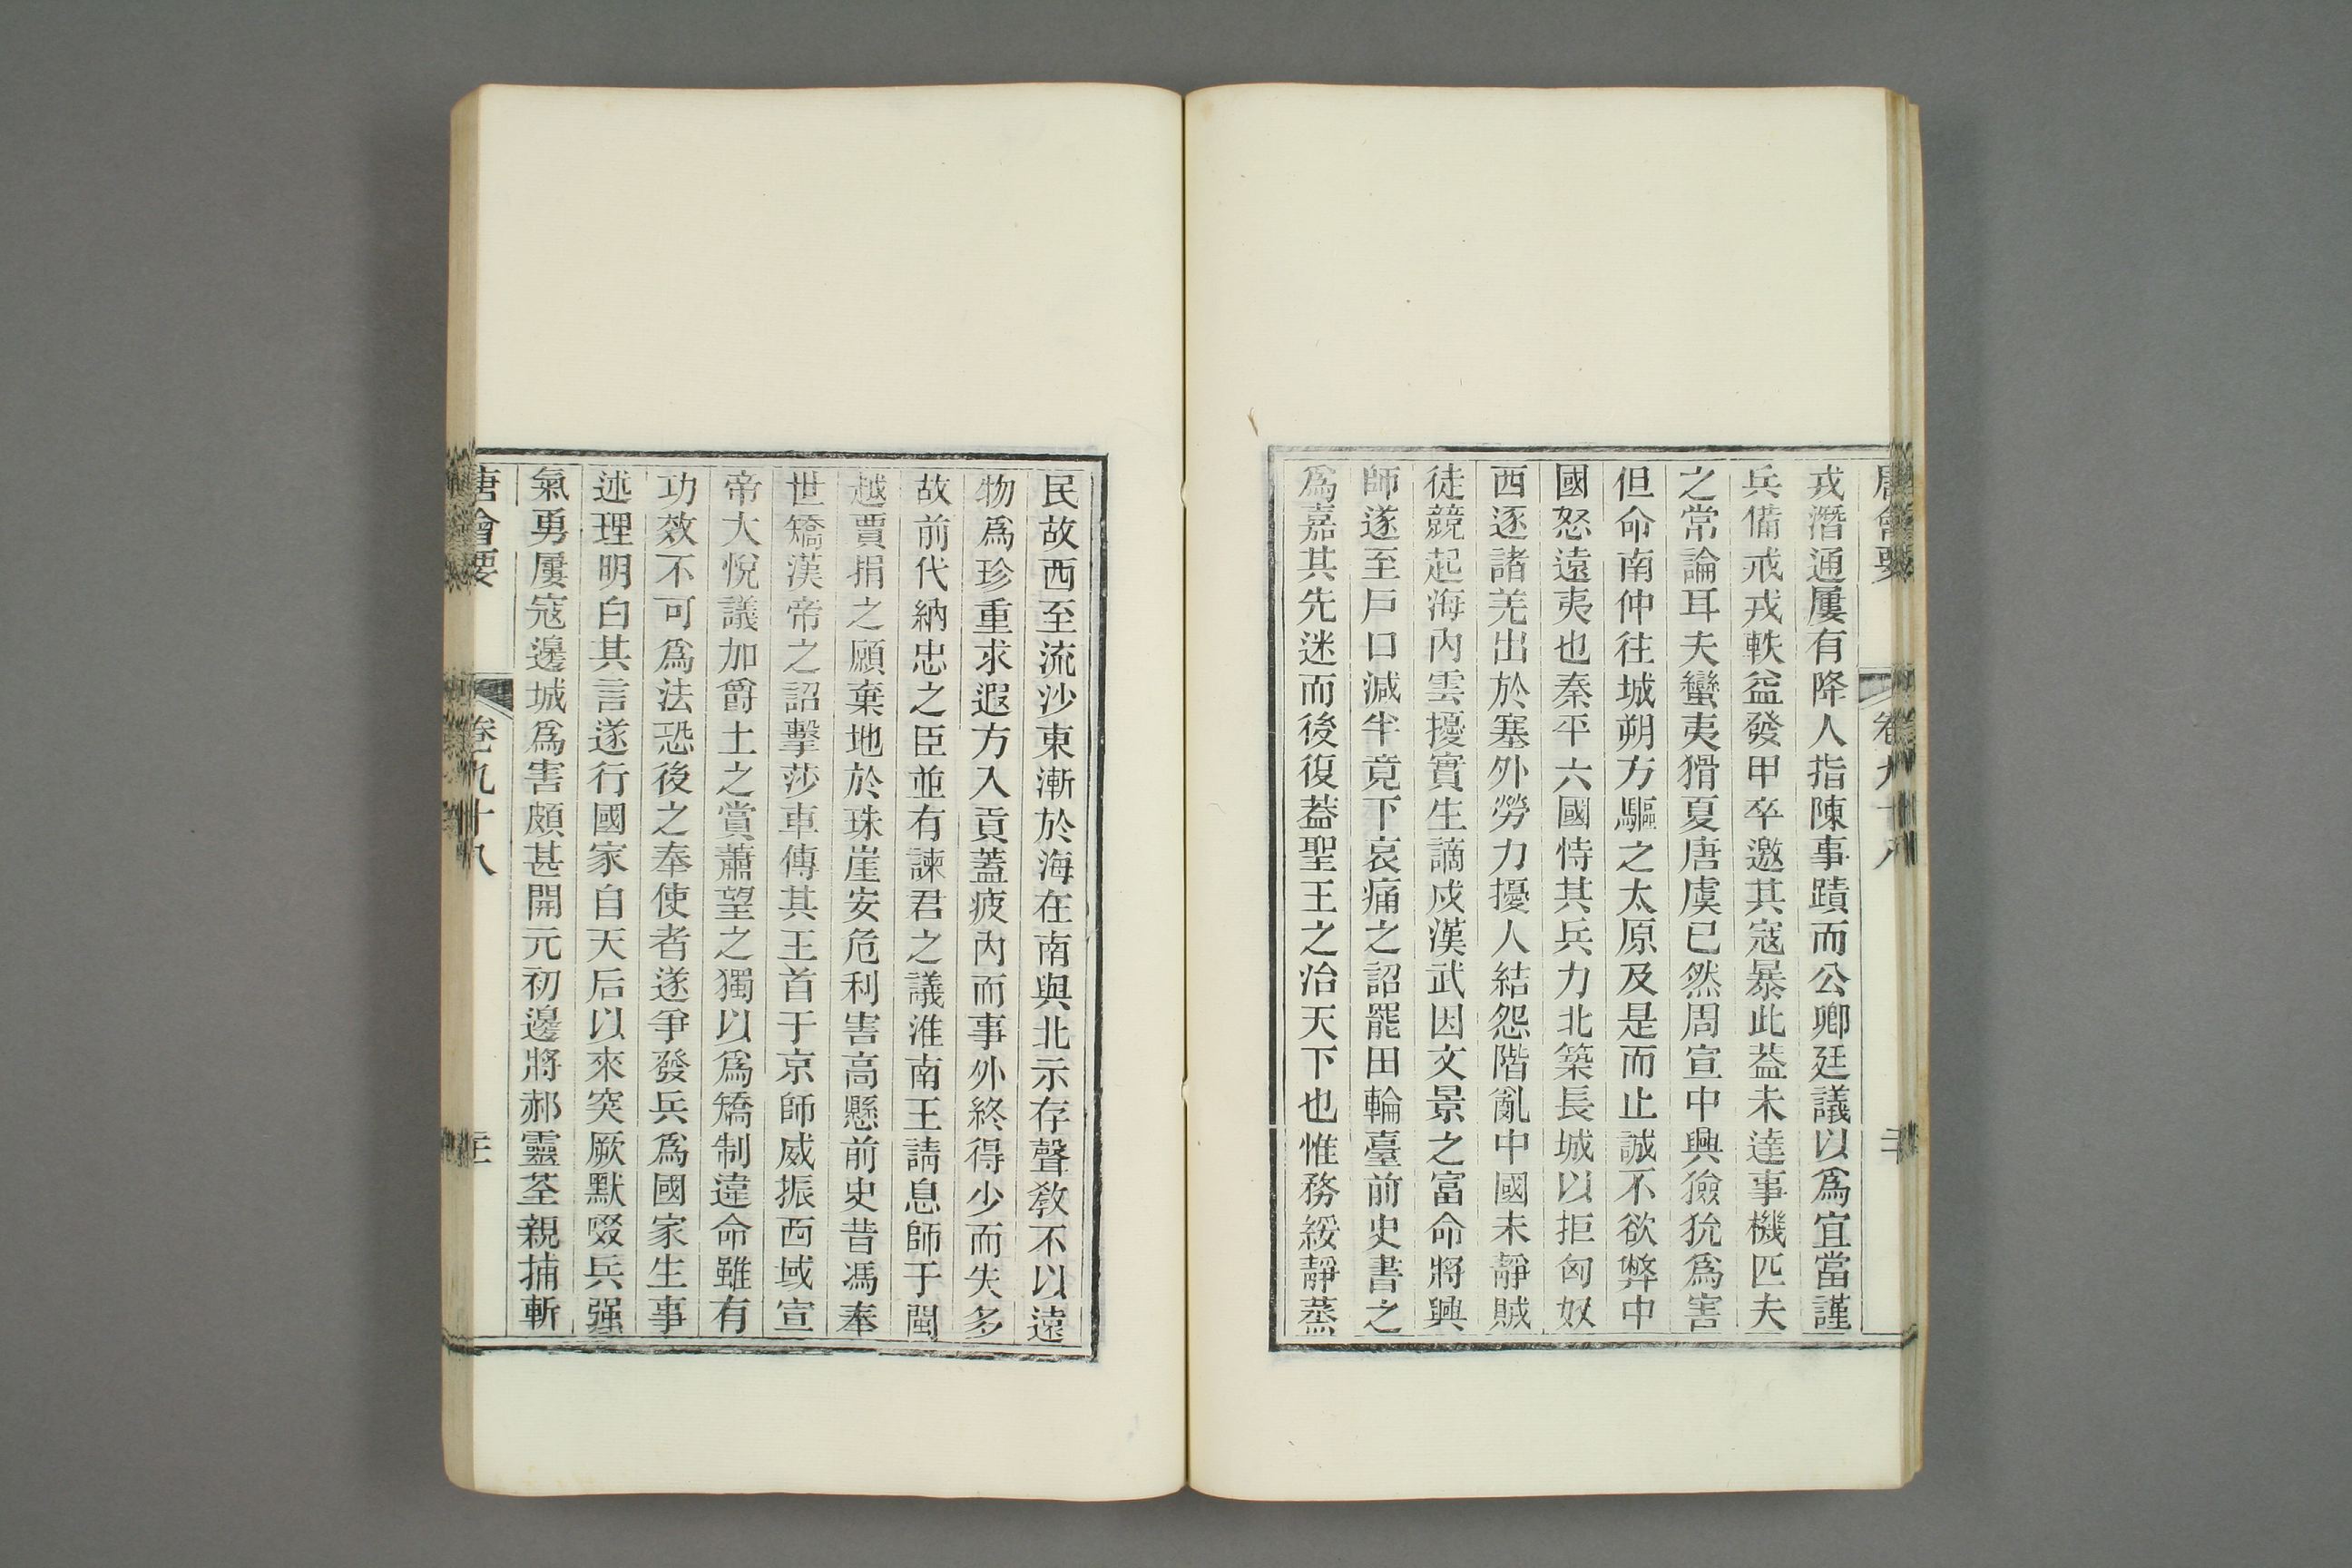 唐會要 卷九十八 二十
戎潛通屢有降人指陳事蹟而公卿廷議以爲宜當謹
兵備戒戎軼益發甲卒邀其寇暴此葢未達事機匹夫
之常論耳夫蠻夷猾夏唐虞已然周宣中興獫狁爲害
但命南仲往城朔方驅之太原及是而止誠不欲弊中
國怒遠夷也秦平六國恃其兵力北築長城以拒匈奴
西逐諸羌出於塞外勞力擾人結怨階亂中國未靜賊
徒競起海內雲擾實生謫戍漢武因文景之富命將興
師遂至戶口減半竟下哀痛之詔罷田輪臺前史書之
爲嘉其先迷而後復葢聖王之治天下也惟務綏靜蒸
民故西至流沙東漸於海在南與北示存聲敎不以遠
物爲珍重求遐方入貢葢疲內而事外終得少而失多
故前代納忠之臣並有諫君之議淮南王請息師于閩
越賈捐之願棄地於珠崖安危利害高懸前史昔馮奉
世矯漢帝之詔擊莎車傳其王首于京師威振西域宣
帝大悅議加爵土之賞蕭望之獨以爲矯制違命雖有
功效不可爲法恐後之奉使者遂爭發兵爲國家生事
述理明白其言遂行國家自天后以來突厥默啜兵强
氣勇屢寇邊城爲害頗甚開元初邊將郝靈荃親捕斬
唐會要 卷九十八